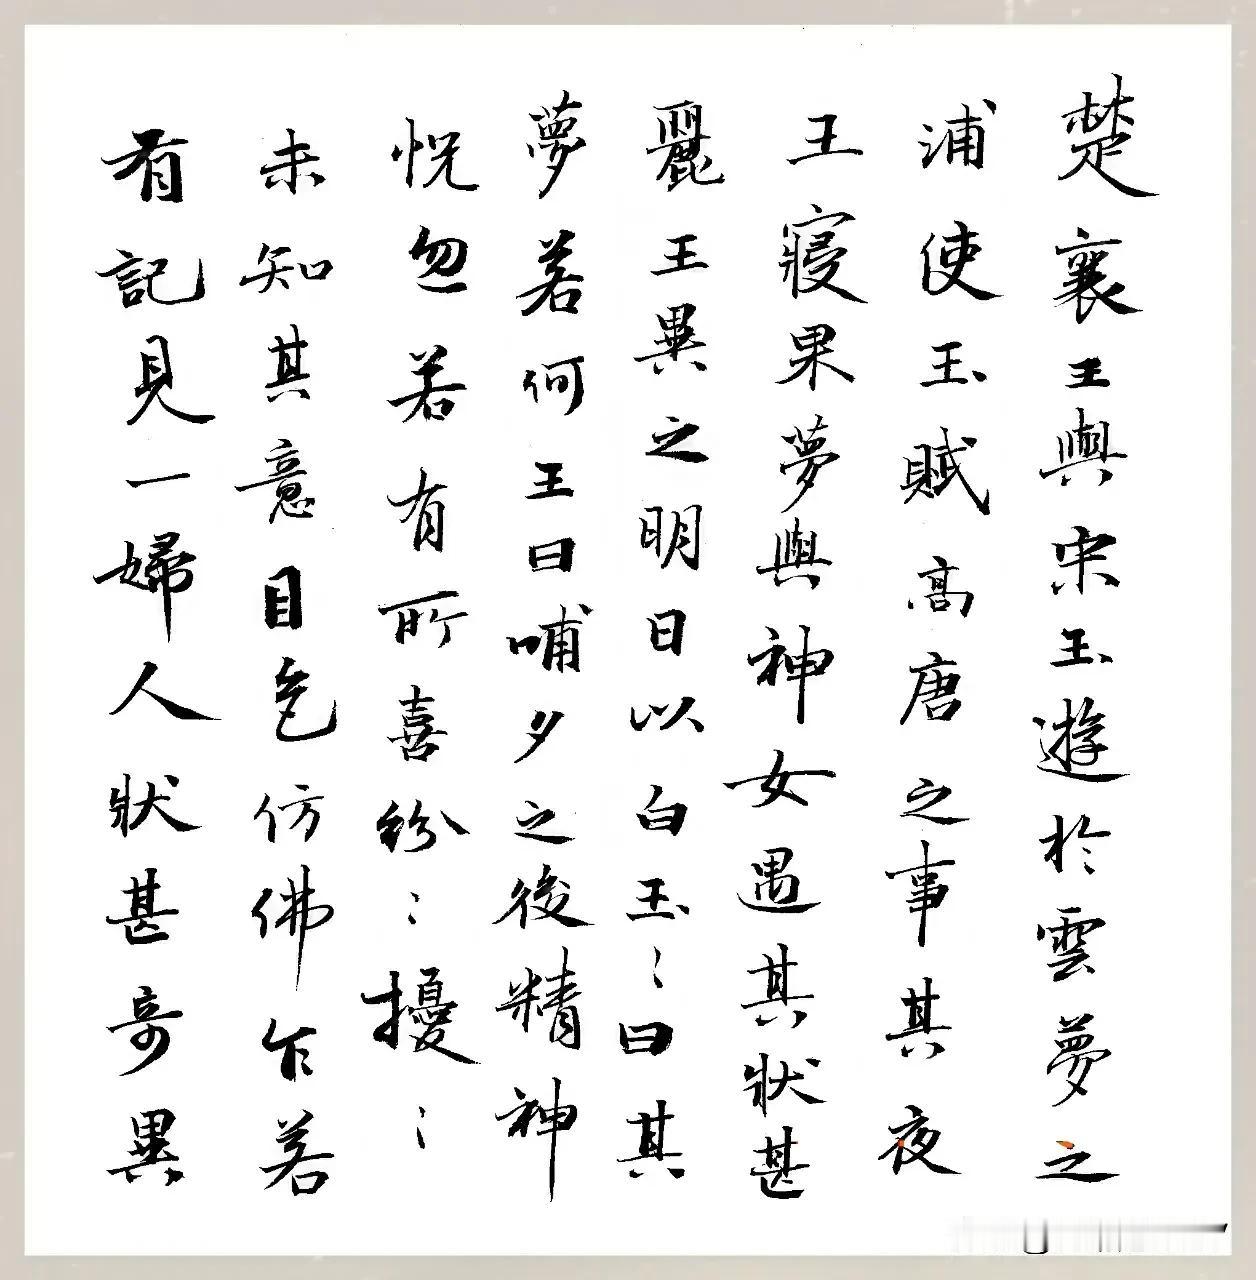 楚襄王與宋玉遊於雲夢之
浦使玉賦高唐之事其夜
王寢果夢與神女遇其狀甚
麗王異之明日以白玉〻曰其
夢若何王曰晡夕之後精神
怳忽若有所喜紛〻擾〻
未知其意目色仿佛乍若
有記見一婦人狀甚奇異